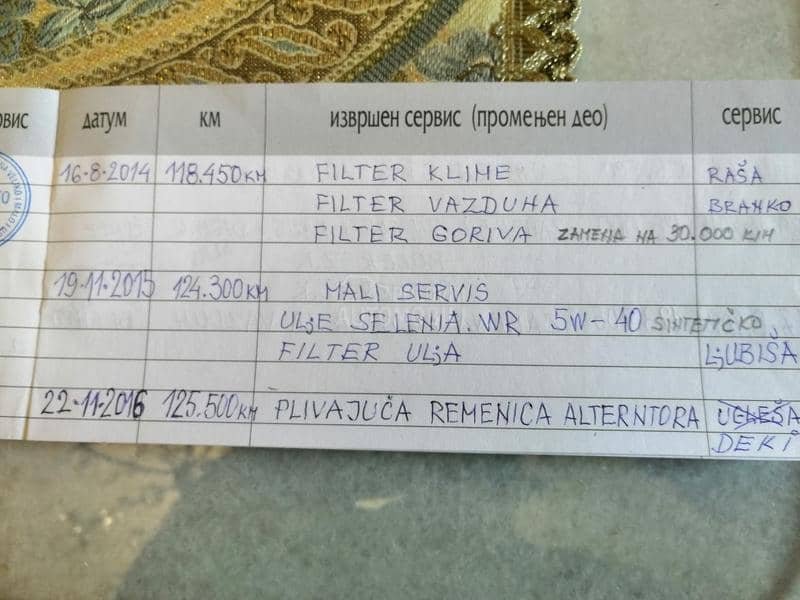 датум км извршен сервис (промењен део) сервис
16-8-2014 118.450км FILTER KLIME RAŠA
FILTER VAZDUHA BRANKO
FILTER GORIVA ZAMENA NA 30.000 KM
19-11-2015 124.300км MALI SERVIS
ULJE SELENIA.WR 5W-40 SINTETIČKO
FILTER ULJA LJUBIŠA
22-11-2016 125.500км PLIVAJUĆA REMENICA ALTERNTORA
DEKI